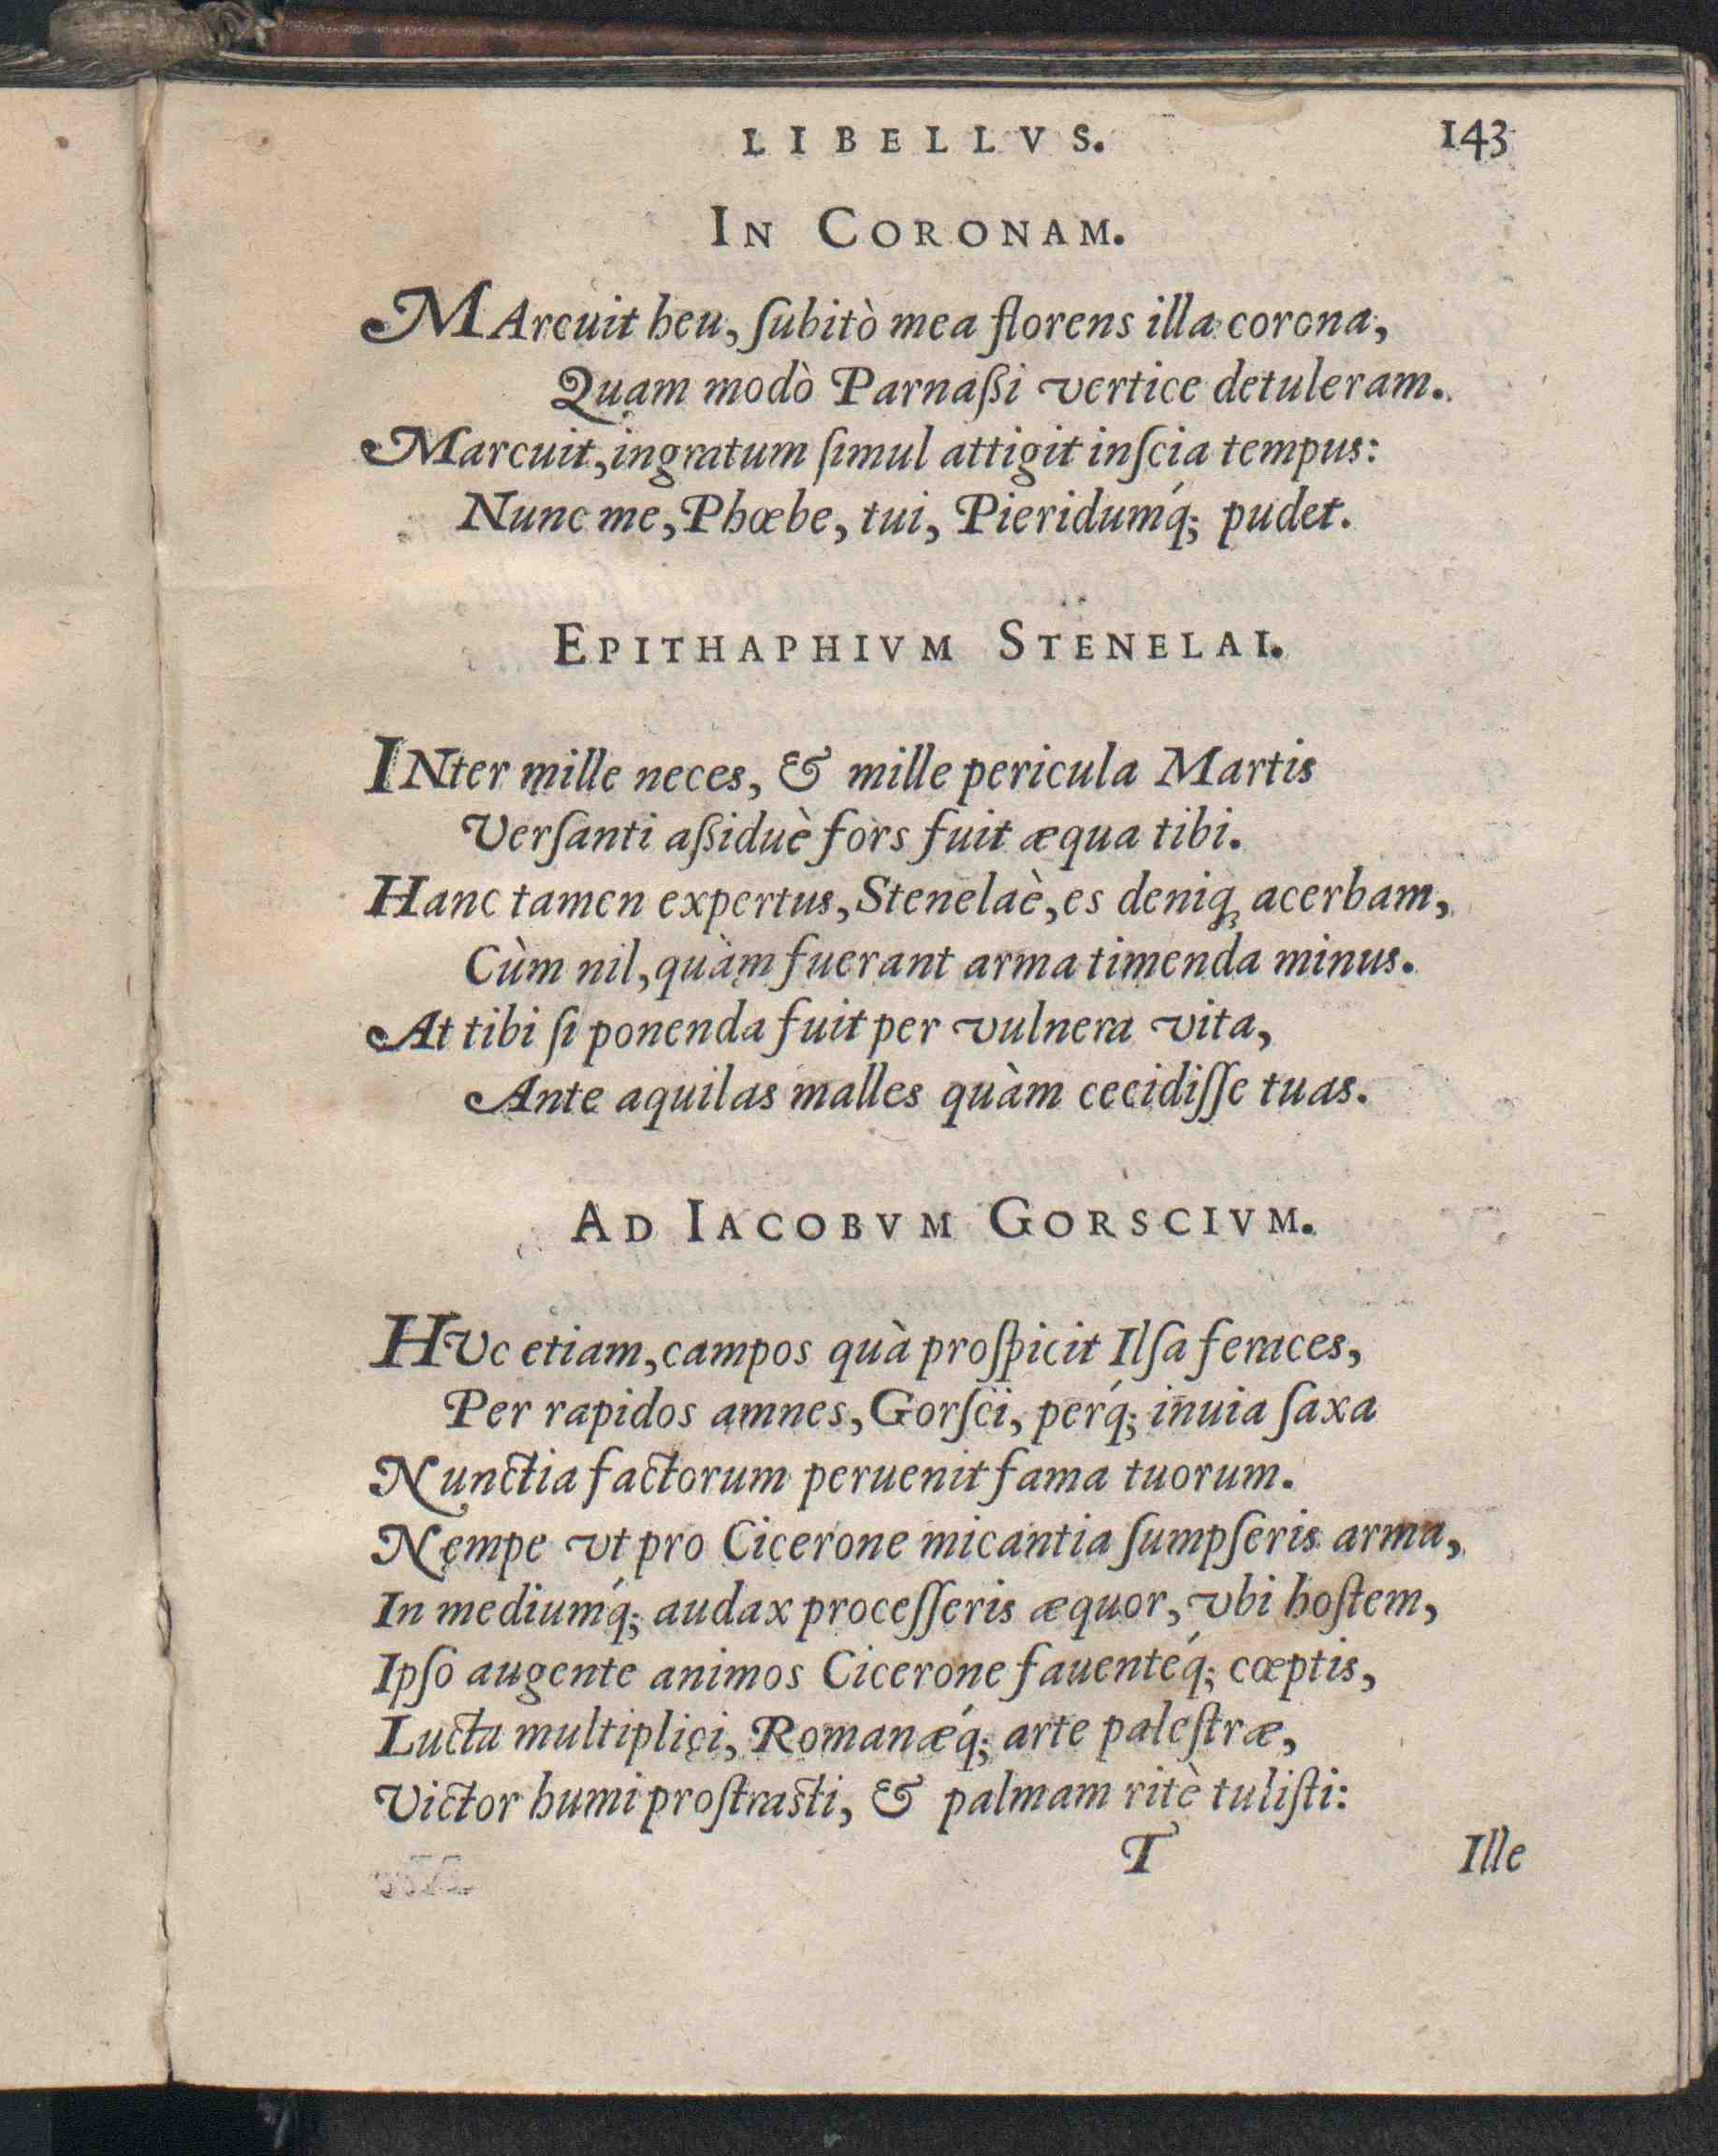 LIBELLVS. 143
IN CORONAM.
MArcuit heu, ſubitò mea florens illa corona,
Quam modò Parnaßi vertice detuleram.
Marcuit, ingratum ſimul attigit inſcia tempus:
Nunc me, Phœbe, tui, Pieridumq́; pudet.
EPITHAPHIVM STENELAI.
INter mille neces, & mille pericula Martis
Verſanti aßiduè fors fuit æqua tibi.
Hanc tamen expertus, Stenelaè, es deniqꝫ acerbam,
Cùm nil, quàm fuerant arma timenda minus.
At tibi ſi ponenda fuit per vulnera vita,
Ante aquilas malles quàm cecidiſſe tuas.
AD IACOBVM GORSCIVM.
HVc etiam, campos quà proſpicit Ilſa feraces,
Per rapidos amnes, Gorſci, perq́; inuia ſaxa
Nunctia factorum peruenit fama tuorum.
Nempe vt pro Cicerone micantia ſumpſeris arma,
In mediumq́; audax proceſſeris æquor, vbi hoſtem,
Ipſo augente animos Cicerone fauenteq́; cœptis,
Lucta multiplici, Romanæq́; arte paleſtræ,
Victor humi proſtraſti, & palmam ritè tuliſti:
T Ille